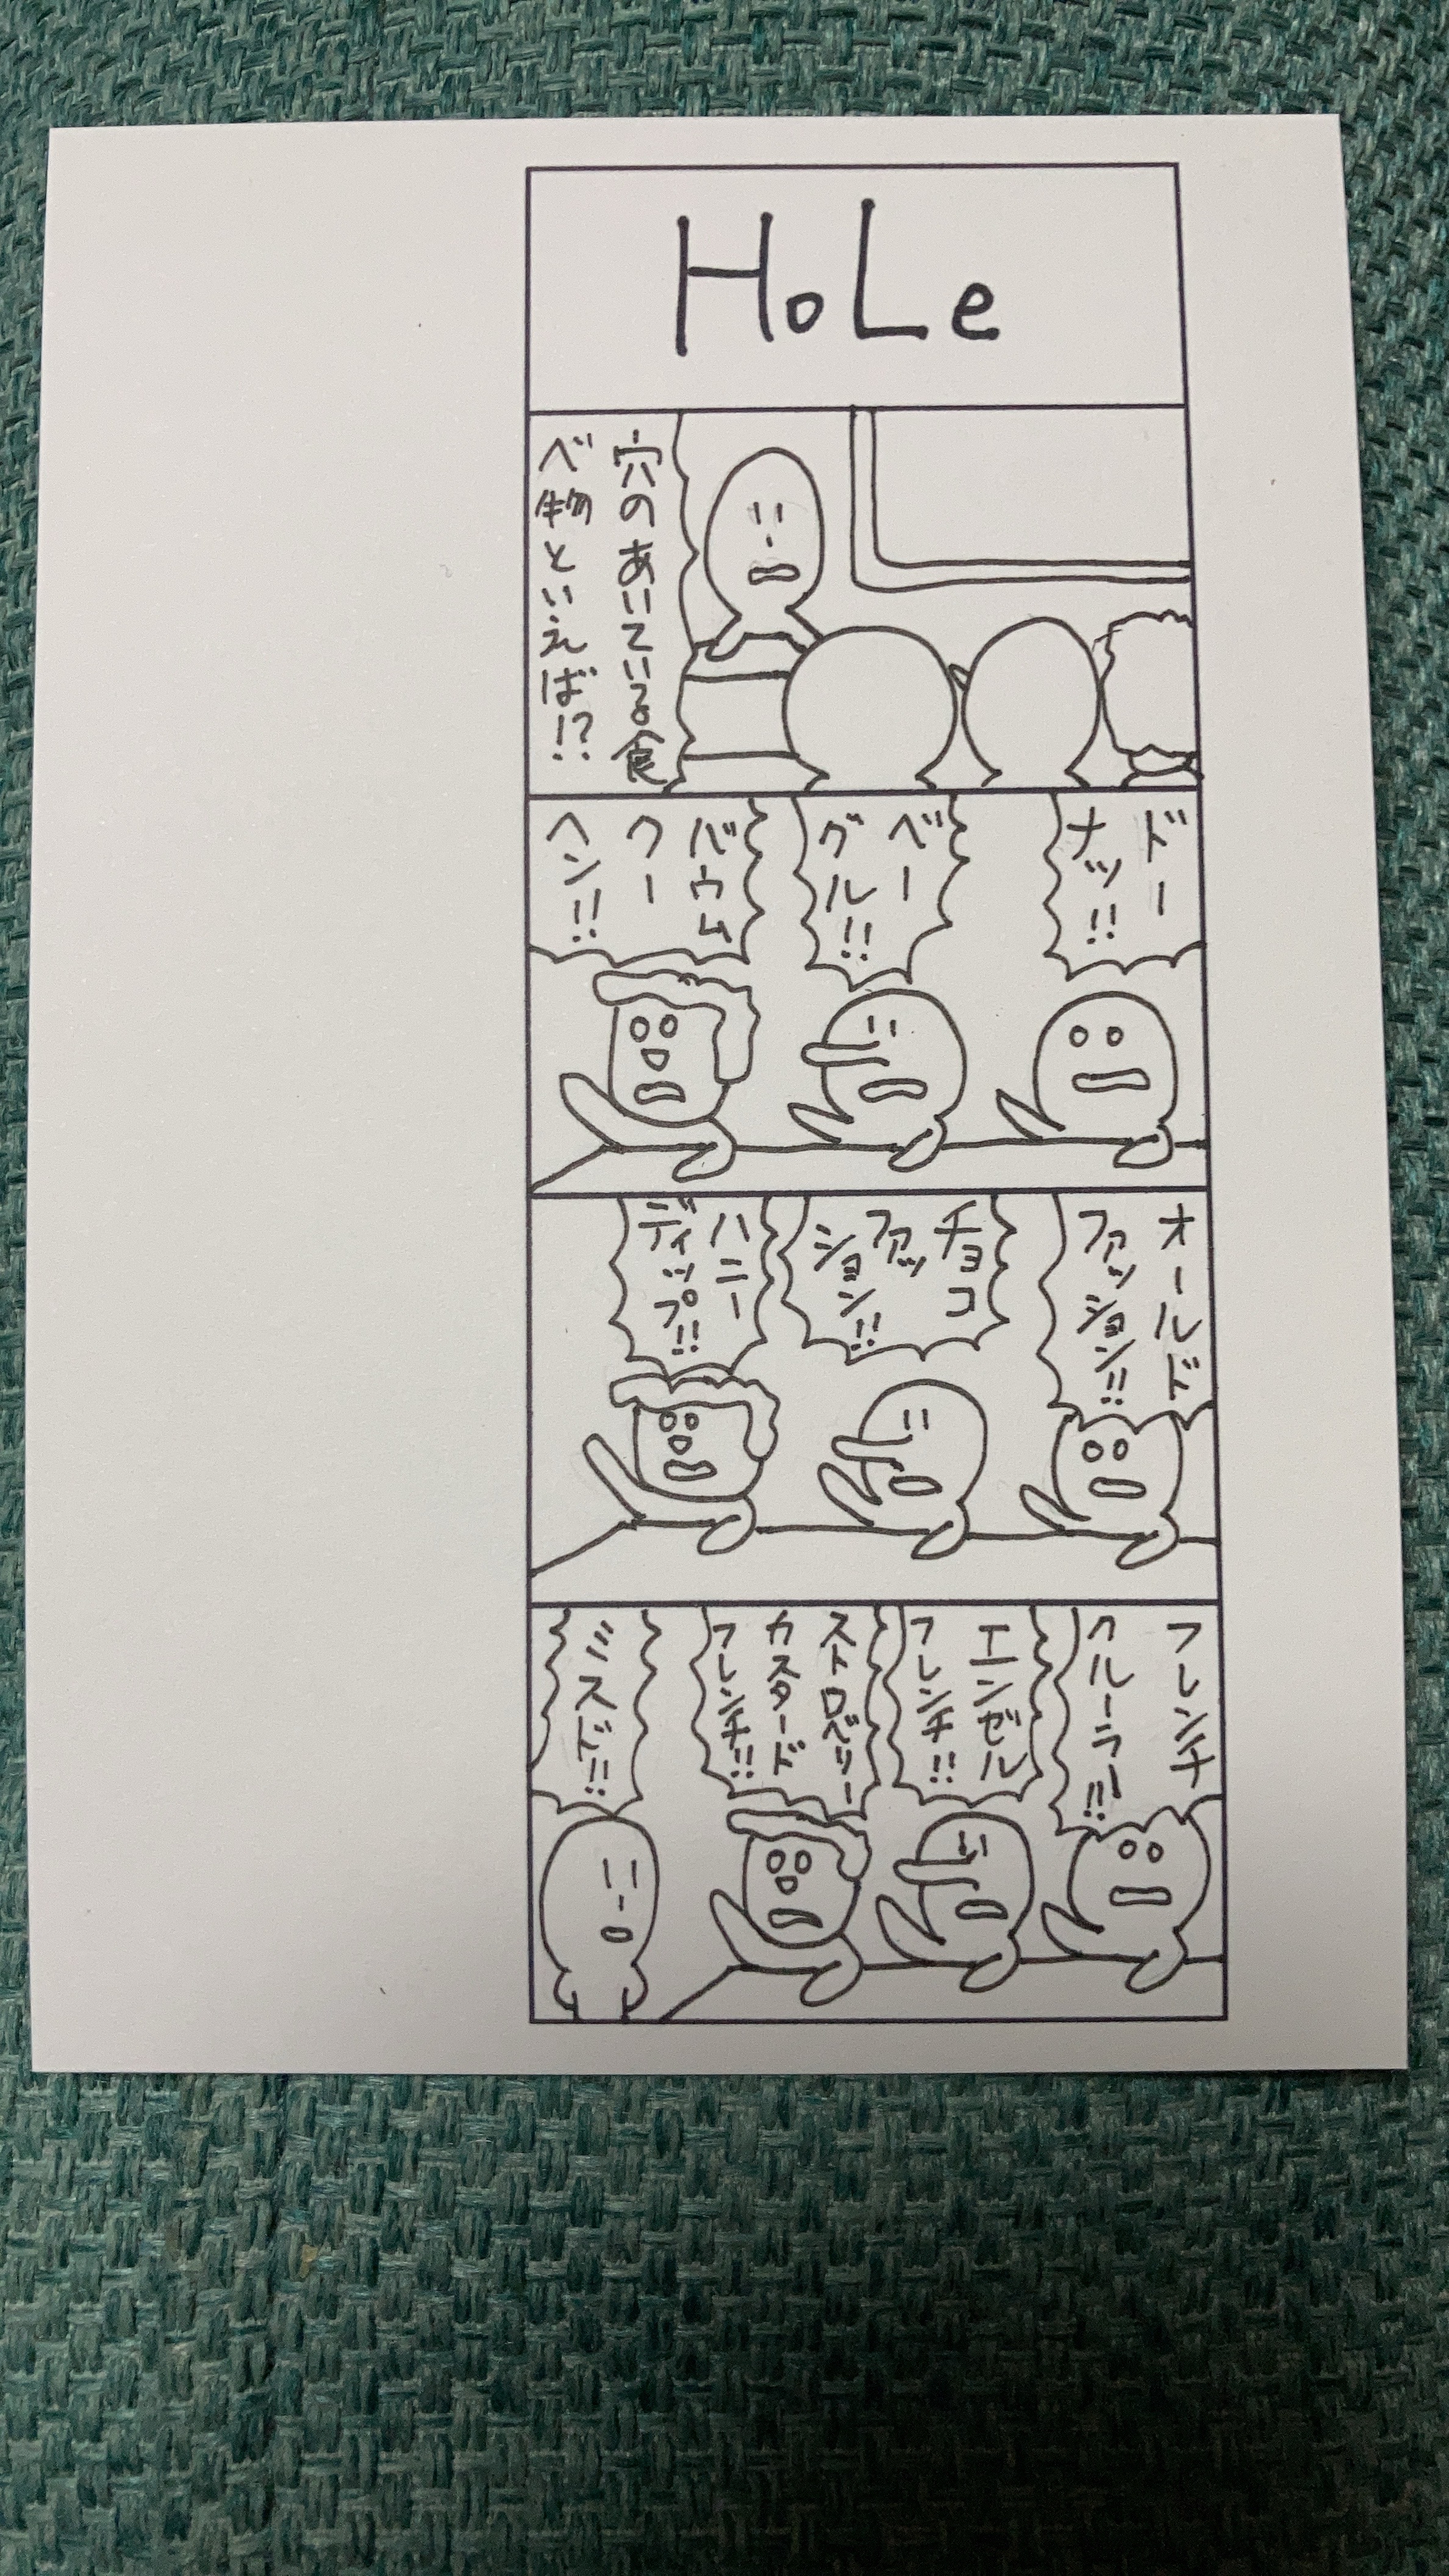 HoLe
穴のあいている食
べ物といえば!?
ドー
ナッ!!
ベー
グル!!
バウム
クー
ヘン!!
オールド
ファッション!!
チョコ
ファッ
ション!!
ハニー
ディップ!!
フレンチ
クルーラー!!
エンゼル
フレンチ!!
ストロベリー
カスタード
フレンチ!!
ミスド!!